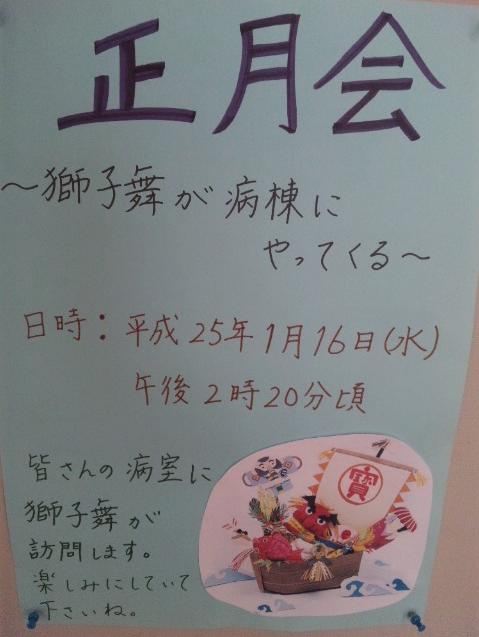 正月会
~獅子舞が病棟に
やってくる~
日時:平成25年1月16日(水)
午後2時20分頃
皆さんの病室に
獅子舞が
訪問します。
楽しみにしていて
下さいね。
寶